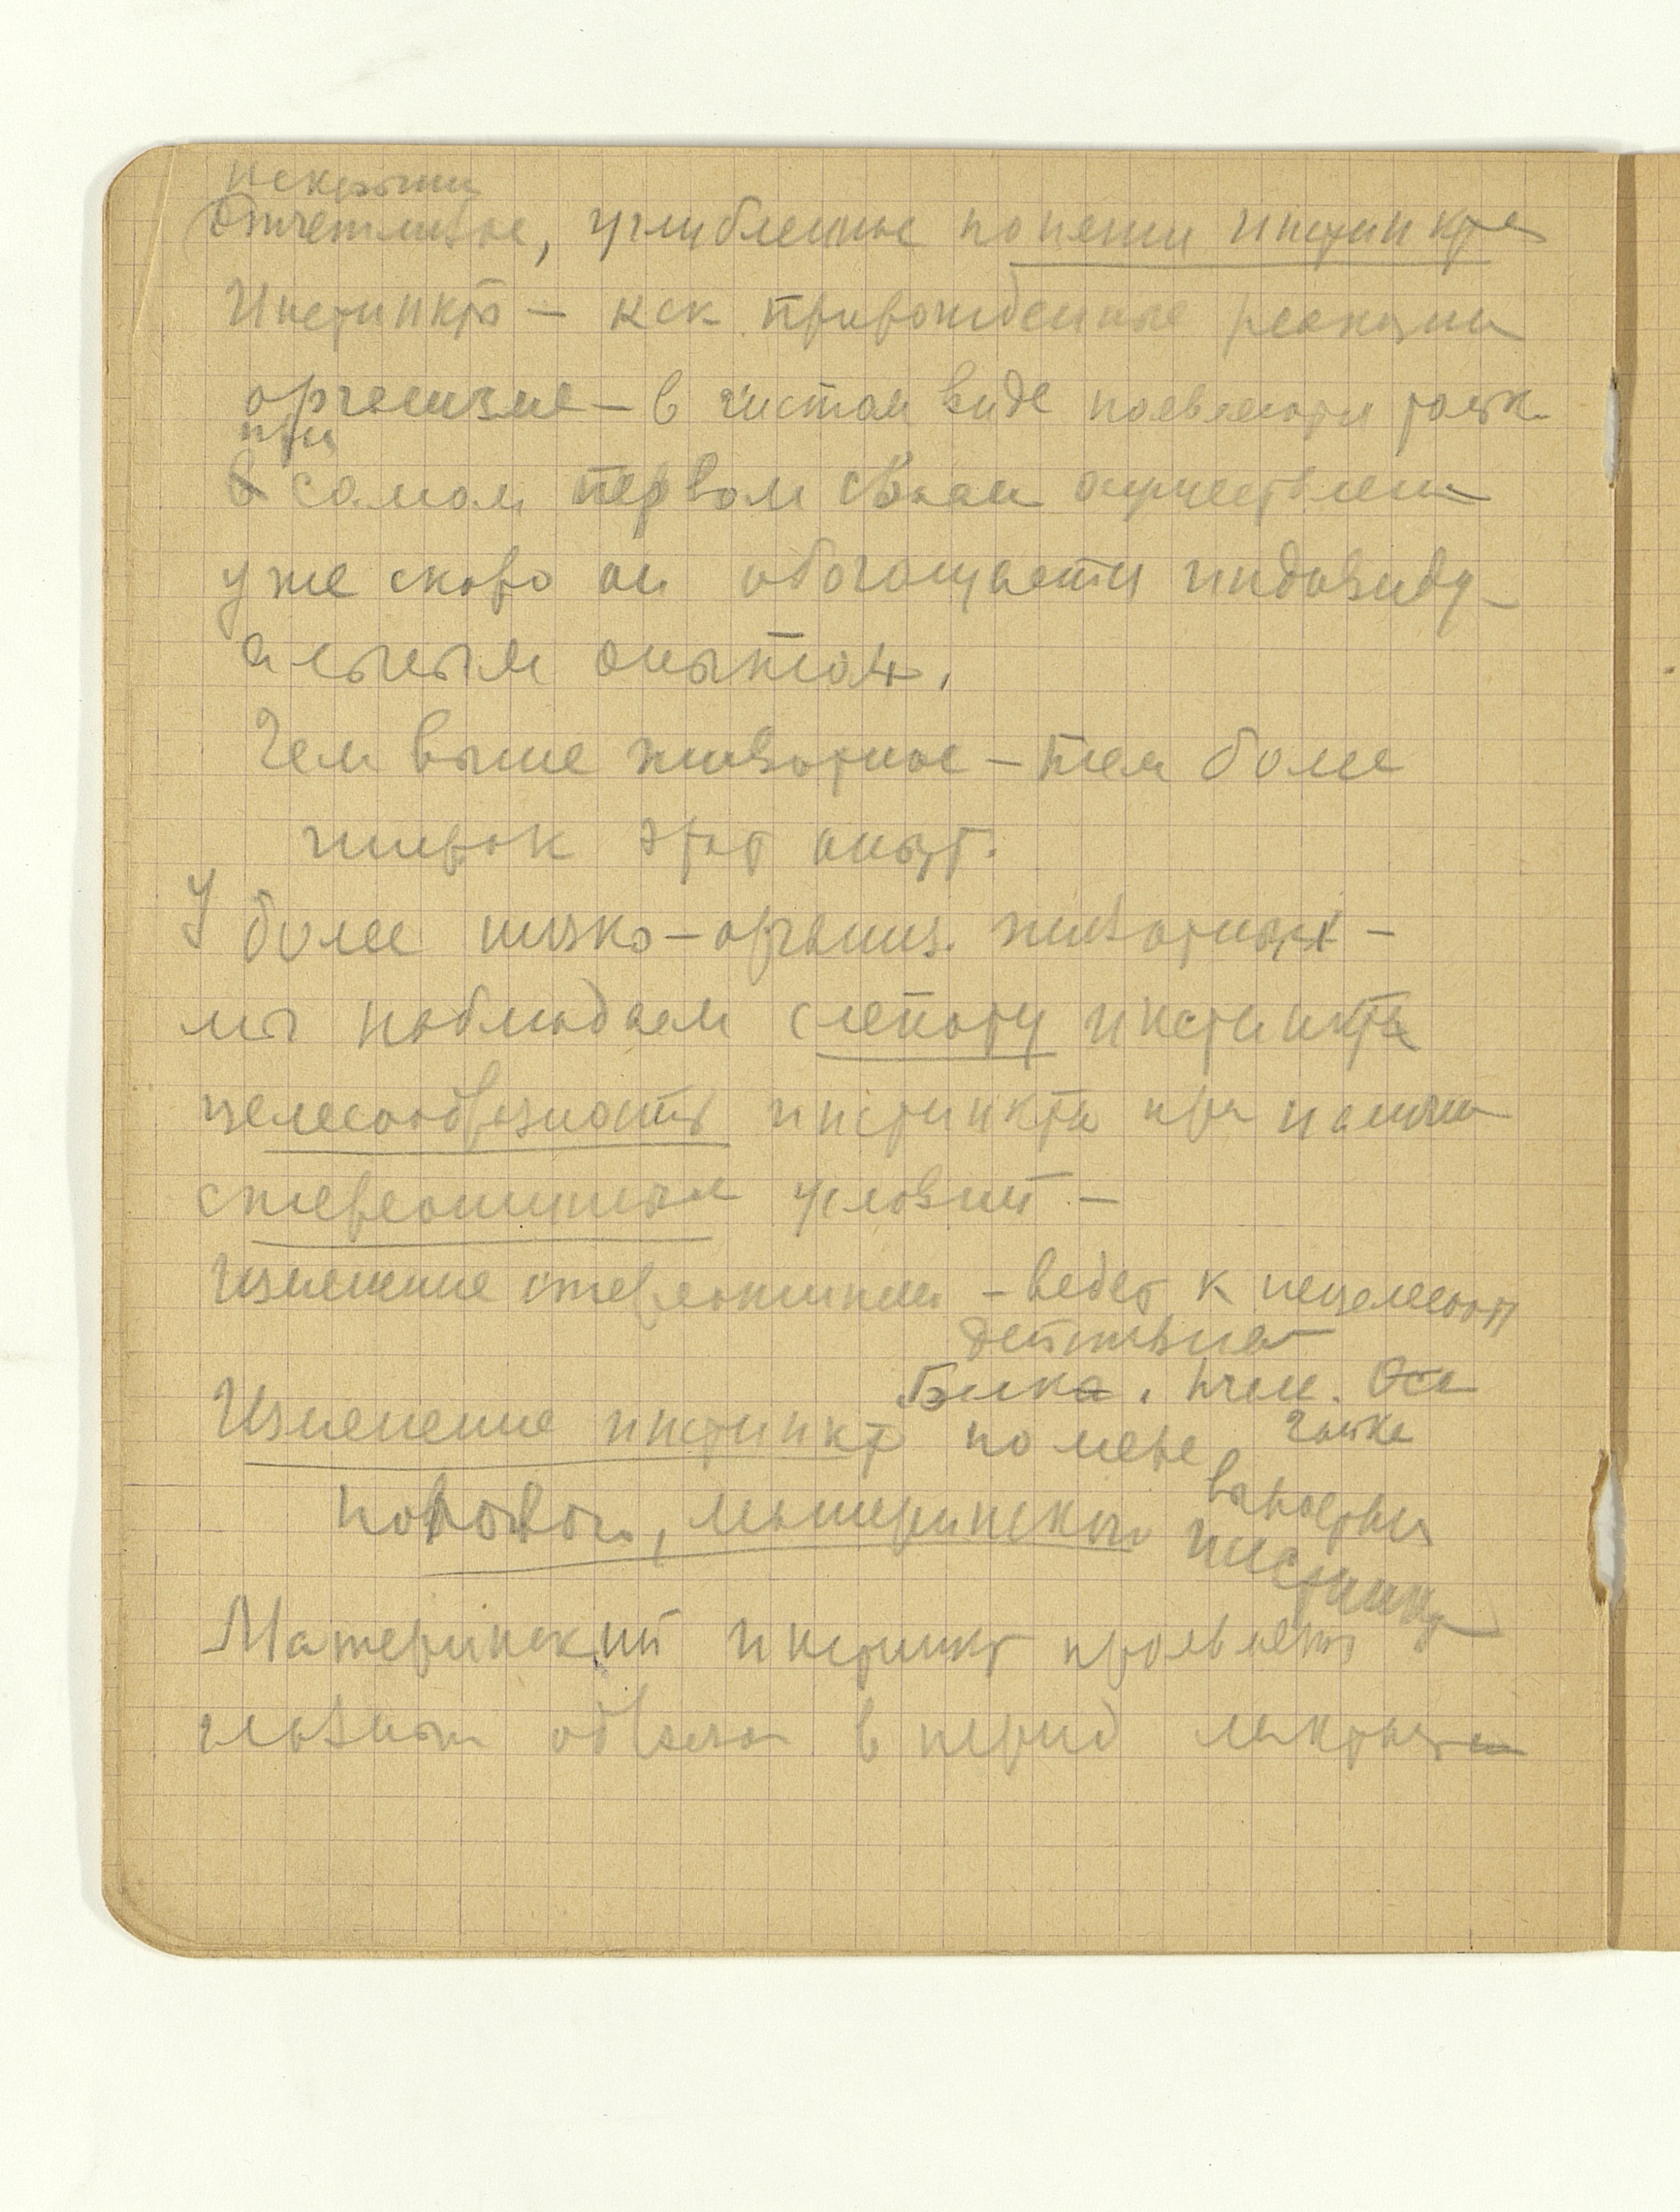 Отчетливое, углубленное понятие инстинкта
Инстинкт – как прирожденные реакции
организма – в чистом виде появляются тольк
при
в самом первом своем осуществлении
уже скоро он обогощается индивиду-
альным опытом.
Чем выше животное – тем более
широк этот опыт.
У более низко-организ. животных –
мы наблюдаем слепоту инстинкта
целесообразность инстинкта при наличии
стереотипных условий –
Изменение стереотипных – ведет к нецелесооб
действиям
Белка. Пчел. Оса
Галка
Изменение инстинкт по мере
возраста
полового, материнского инстинкта
Материнский инстинкт проявляет
главным образом в период лактации